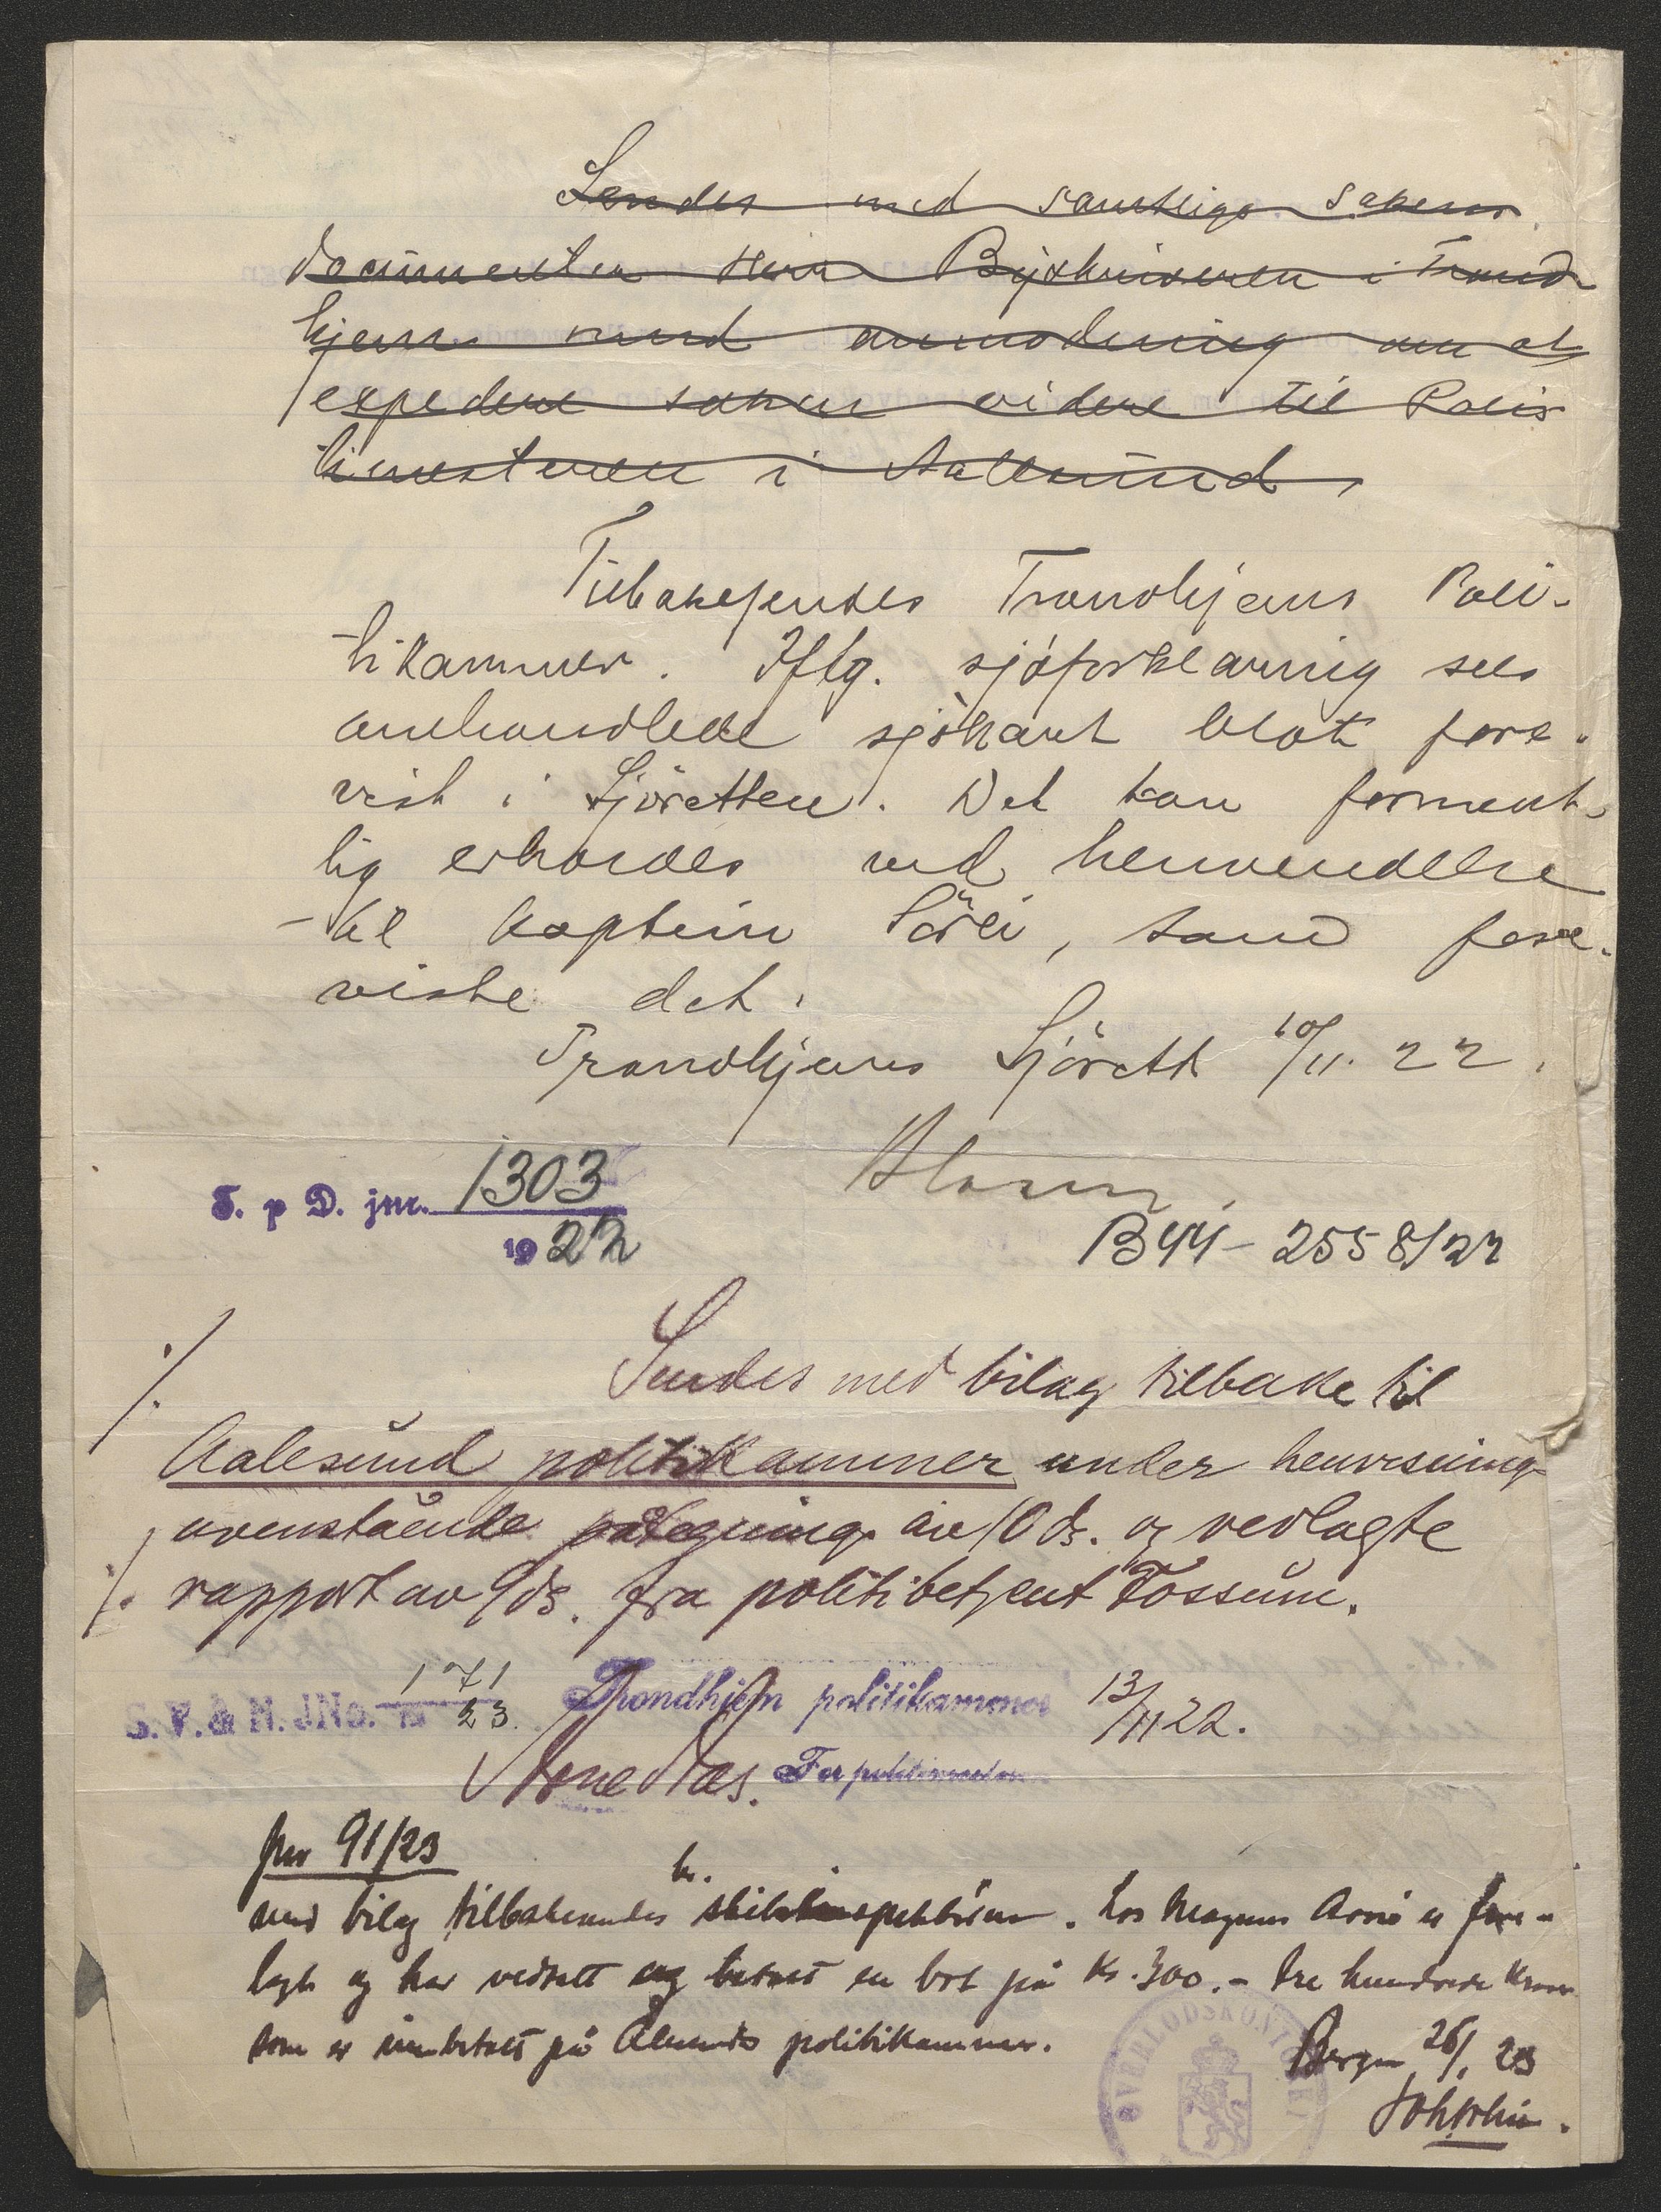 Sendes med samtlige sakens
documenter Herr Byskriveren i Trond
hjem med anmodning om at
expedere saken videre til Polis
timesteren i Aalesund
Tilbakesendes Trondhjems Poli-
tikammer. Iflg. sjøforklaring sees
omhandlede sjökart blot fore-
vist i Sjöretten. Det kan forment-
lig erholdes ved henvendelse
til kaptein, som fore-
viste det.
Trondhjems Sjörett 10/11. 22.
T. p D. jnr. 1303
1922
B44 - 2558/22
Sendes med bilag tilbake til
Aalesund politikammer under henvisning
ovenstående påtegning av 10 ds. og vedlagte
rapport av 9 ds. fra politibetjent Fossum.
S. V. & N. JNo. 171
23.
Trondhjem politikammer 13/11 22.
Næs. For politimesteren
jnr 91/23
hr.
med bilag tilbakesendes skibsinspektören. Los Magnus er fore-
lagt og har vedtatt og betalt en bot på Kr. 300.- tre hundrede kroner
som er innbetalt på Ålesunds politikammer.
Bergen 26/1 23
OVERLODSKONTORET